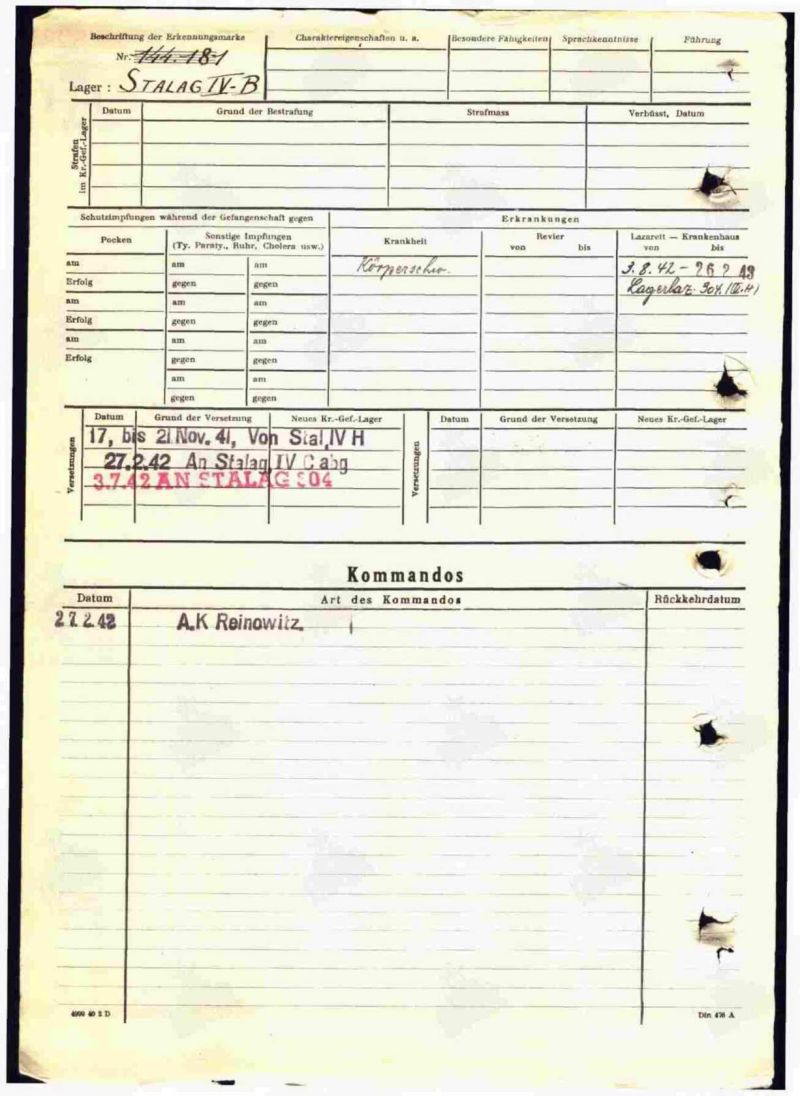 Beschriftung der Erkennungsmarke
Nr. 144.181
Lager : STALAG IV-B
Charaktereigenschaften u. a.
Besondere Fähigkeiten
Sprachkenntnisse
Führung
Strafen im Kr.-Gef.-Lager
Datum
Grund der Bestrafung
Strafmass
Verbüsst, Datum
Schutzimpfungen während der Gefangenschaft gegen
Erkrankungen
Pocken
Sonstige Impfungen
(Ty. Paraty., Ruhr, Cholera usw.)
Krankheit
Revier
von bis
Lazarett — Krankenhaus
von bis
am am am
Körperschw. 3.8.42 - 26 2 43
Erfolg gegen gegen
Lagerlaz. 304 (IV.H)
am am am
Erfolg gegen gegen
am am am
Erfolg gegen gegen
am am
gegen gegen
Versetzungen
Datum Grund der Versetzung Neues Kr.-Gef.-Lager
Versetzungen
Datum Grund der Versetzung Neues Kr.-Gef.-Lager
17, bis 21 Nov. 41, Von Stal, IV H
27.2.42 An Stalag IV C abg
3.7.42 AN STALAG 304
Kommandos
Datum Art des Kommandos Rückkehrdatum
27.2.42 A.K Reinowitz.
4999 40 2 D
Din 476 A